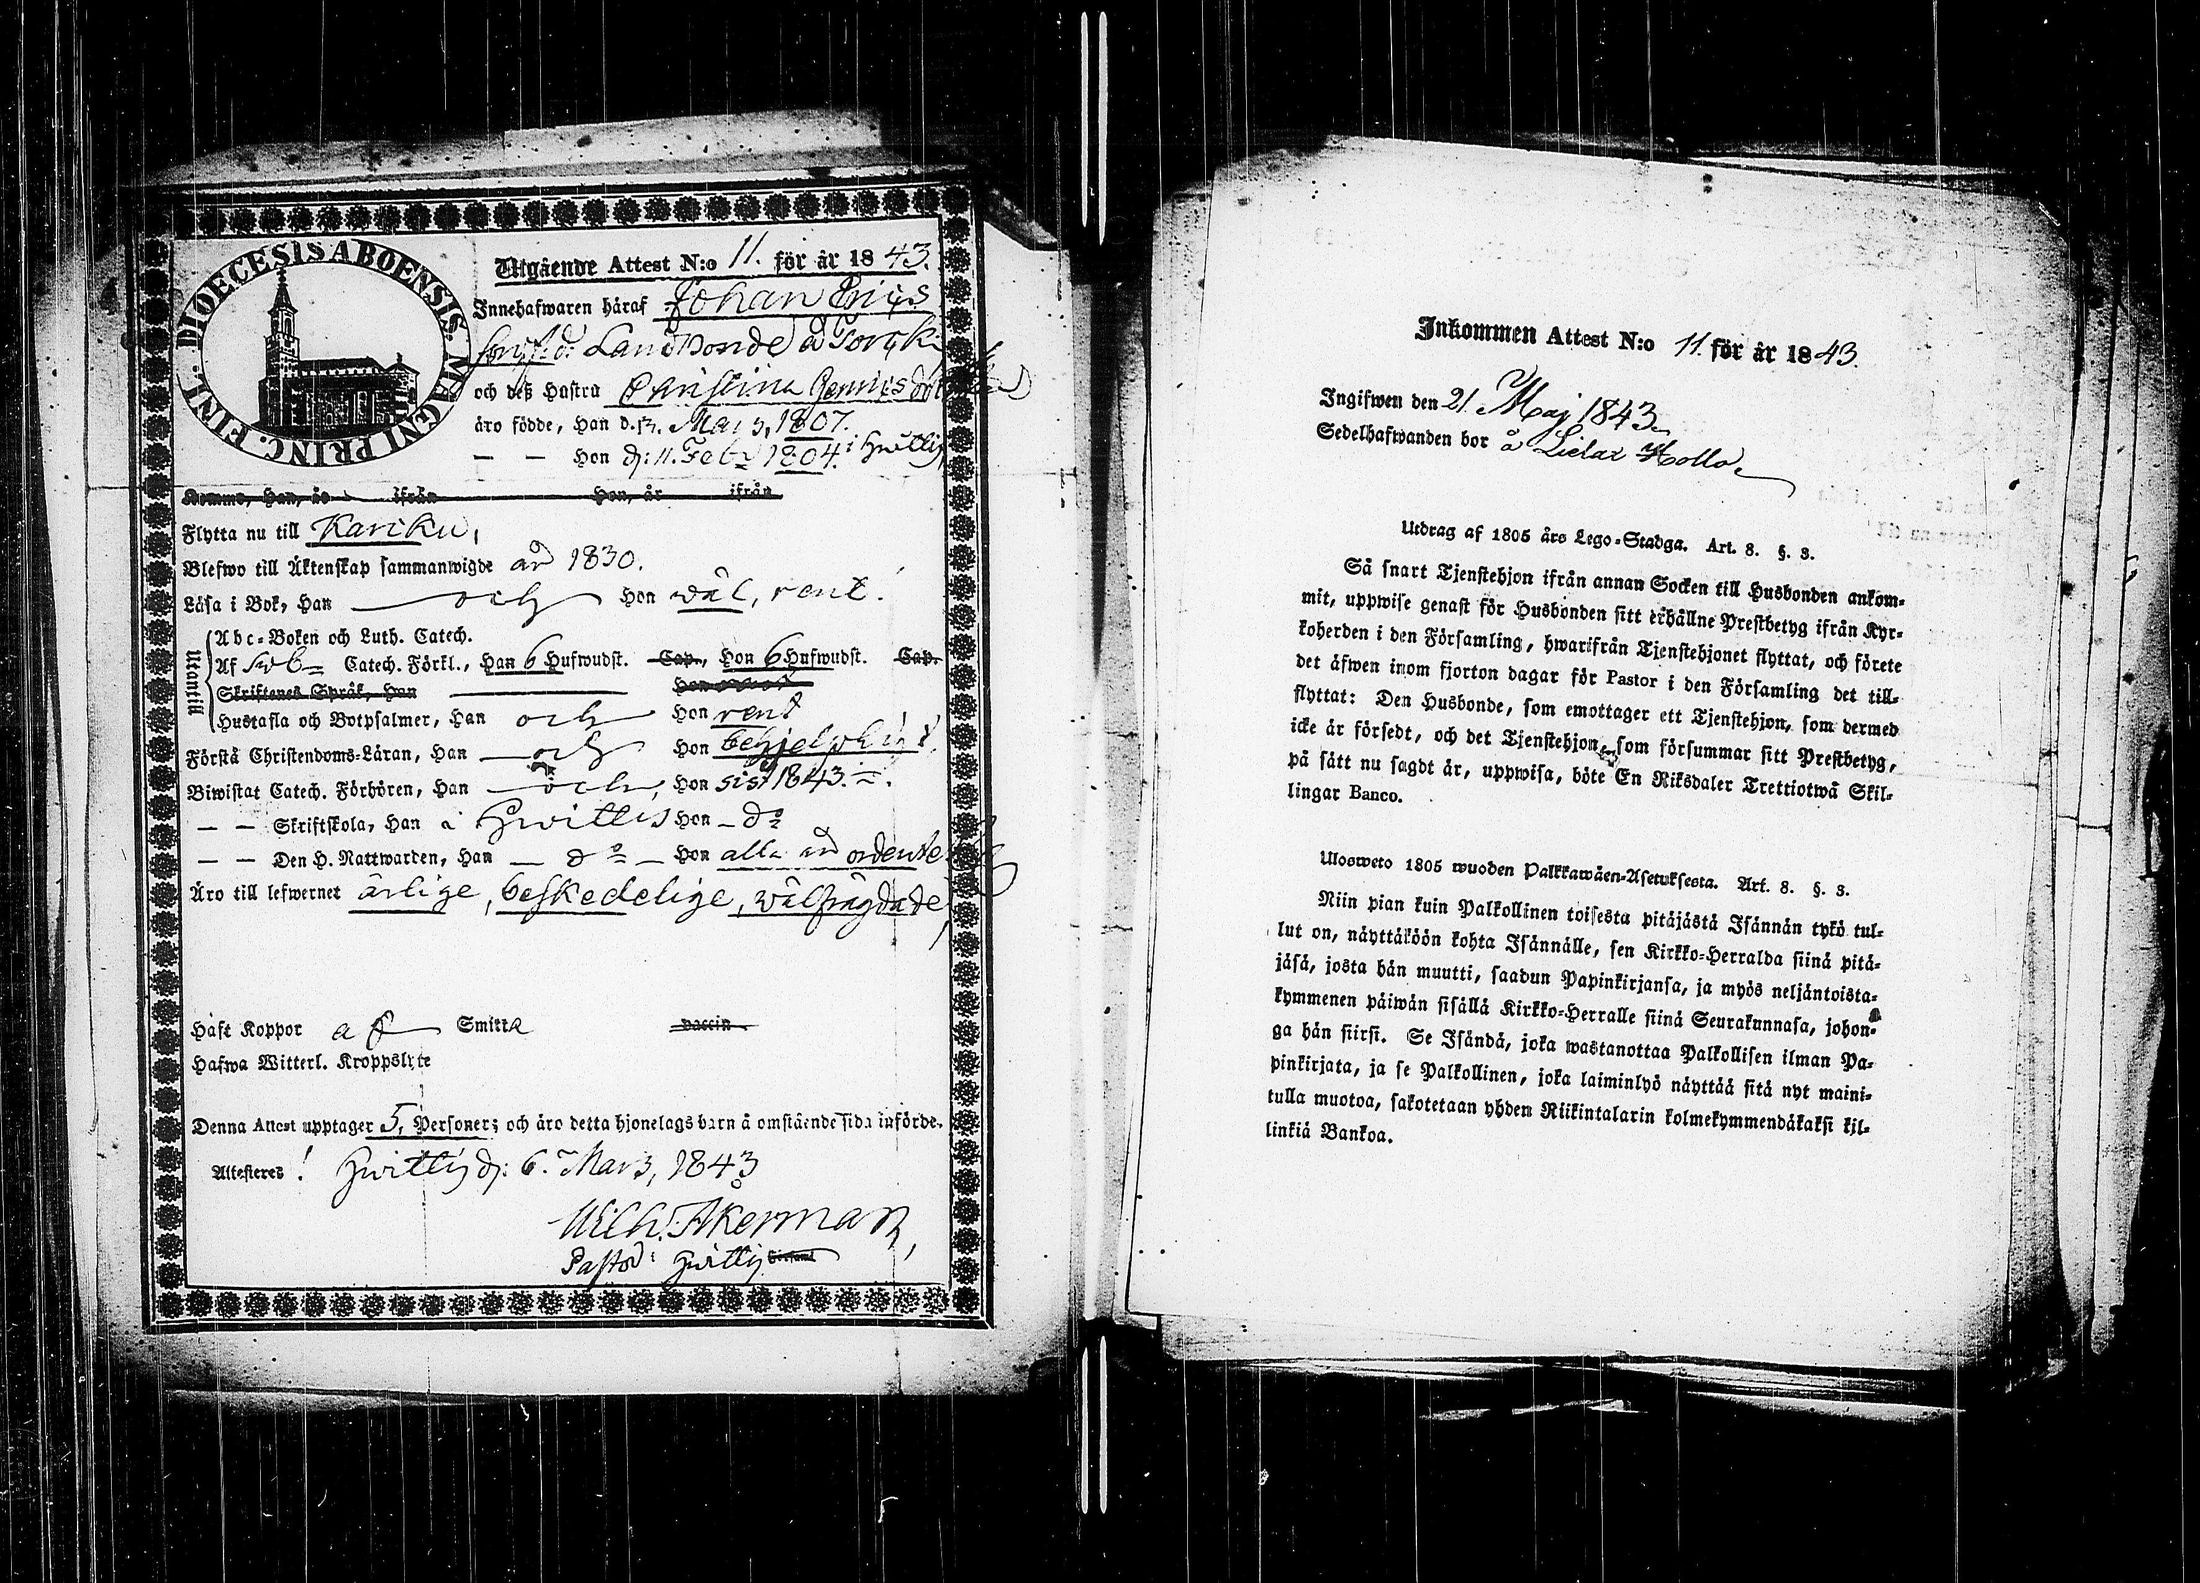 DIOECESIS ABOENSIS. MAGNI PRINC. FINL.
Utgående Attest N:o 11. för år 1843.
Innehafwaren häraf Johan Erics
son, f. d. Landbonde å
och deß Hustru Christina
äro födde, Han d. 12. Mars, 1807.
— — Hon d: 11. Feb: 1804. i Hwittis
Komne, Han, år ifrån Hon, år ifrån
Flytta nu till Kariku,
Blefwo till Äktenskap sammanwigde år 1830.
Läsa i Bok, Han och Hon wäl, rent.
Utantill
Abc-Boken och Luth. Catech.
Af Catech. Förkl., Han 6 Hufwudst. Cap., Hon 6 Hufwudst. Cap.
Skriftenes Språk, Han Hon
Hustafla och Botpsalmer, Han och Hon rent
Förstå Christendoms-Läran, Han och Hon behjelpligt,
Biwistat Catech. Förhören, Han och, Hon sist 1843.
— — Skriftskola, Han i Hwittis Hon — d:o
— — Den H. Nattwarden, Han — d:o — Hon alla år ordente
Äro till lefwernet ärlige, beskedelige, wälfrägdade,
Haft Koppor af Smitta vaccin.
Hafwa Witterl. Kroppslyte
Denna Attest upptager 5, Personer; och äro detta hjonelags barn å omstående sida införde.
Attesteres! Hwittis d: 6. Mars, 1843
Wilh. Åkerman,
Pastor i Hwittis
Inkommen Attest N:o 11. för år 1843.
Ingifwen den 21. Maj 1843
Sedelhafwanden bor å Lielax Hollo
Utdrag af 1805 års Lego-Stadga. Art. 8. §. 3.
Så snart Tjenstehjon ifrån annan Socken till Husbonden ankom-
mit, uppwise genast för Husbonden sitt erhållne Prestbetyg ifrån Kyr-
koherden i den Församling, hwarifrån Tjenstehjonet flyttat, och förete
det äfwen inom fjorton dagar för Pastor i den Församling det till-
flyttat: Den Husbonde, som emottager ett Tjenstehjon, som dermed
icke är försedt, och det Tjenstehjon, som försummar sitt Prestbetyg,
på sätt nu sagdt är, uppwisa, böte En Riksdaler Trettiotwå Skil-
lingar Banco.
Ulosweto 1805 wuoden Palkkawäen-Asetuksesta. Art. 8. §. 3.
Niin pian kuin Palkollinen toisesta pitäjästä Isännän tykö tul-
lut on, näyttäköön kohta Isännälle, sen Kirkko-Herralda siinä pitä-
jäsä, josta hän muutti, saadun Papinkirjansa, ja myös neljäntoista-
kymmenen päiwän sisällä Kirkko-Herralle siinä Seurakunnasa, johon-
ga hän siirsi. Se Isändä, joka wastanottaa Palkollisen ilman Pa-
pinkirjata, ja se Palkollinen, joka laiminlyö näyttää sitä nyt maini-
tulla muotoa, sakotetaan yhden Riikintalarin kolmekymmendäkaksi kil-
linkiä Bankoa.